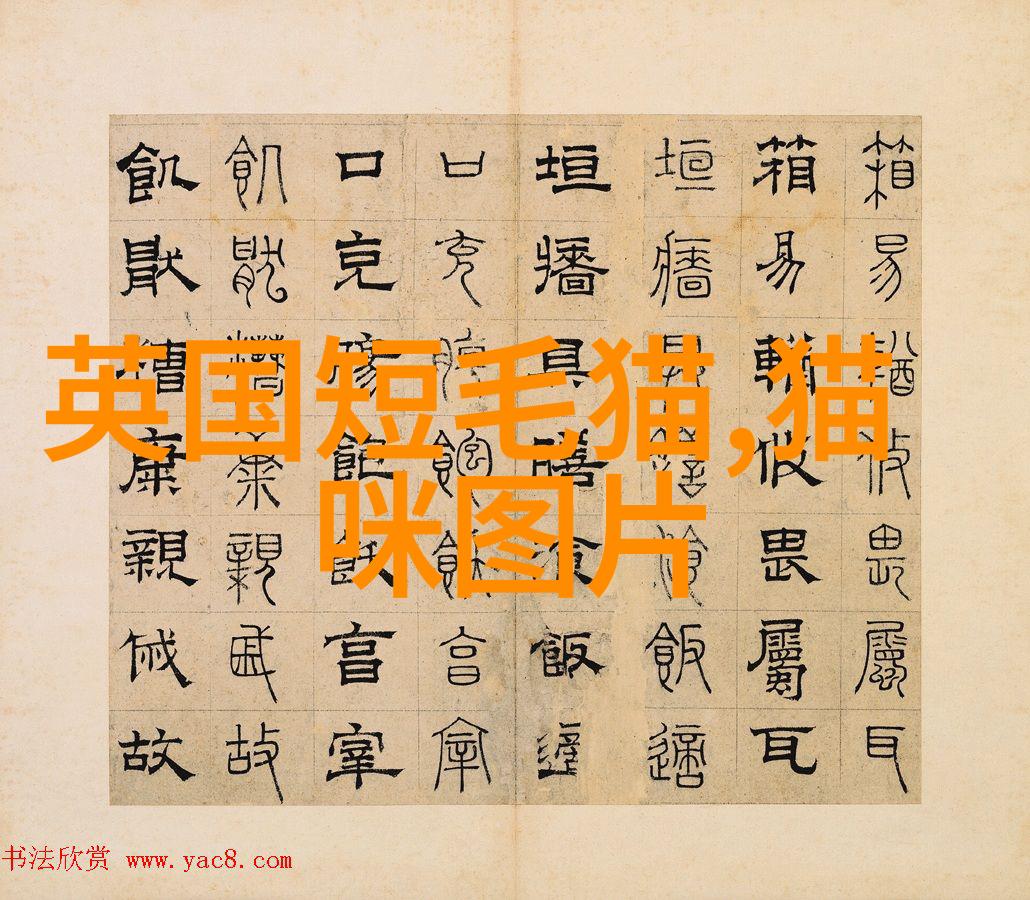 英国短毛猫,猫
咪图片
箱易輶攸畏屬耳
箱易輶攸畏屬耳
垣牆具膳飡飯適
垣牆具膳飡飯適
口充腸飽飫享宰
口充腸飽飫享宰
飢厭糟糠親戚故
飢厭糟糠親戚故
书法欣赏 www.yac8.com